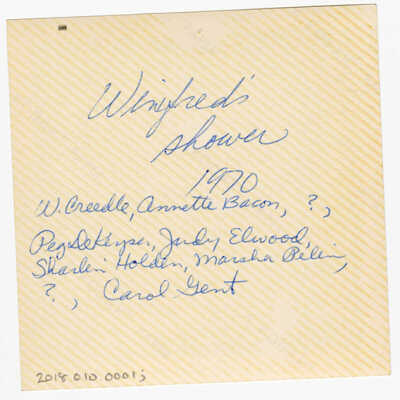 Winifred's
shower
1970
W. Creedle, Annette Bacon, ?,
Peg DeKeyser, Judy Elwood,
Sharlin Holden, Marsha Pelin,
?, Carol Gent
2018.010.0001j